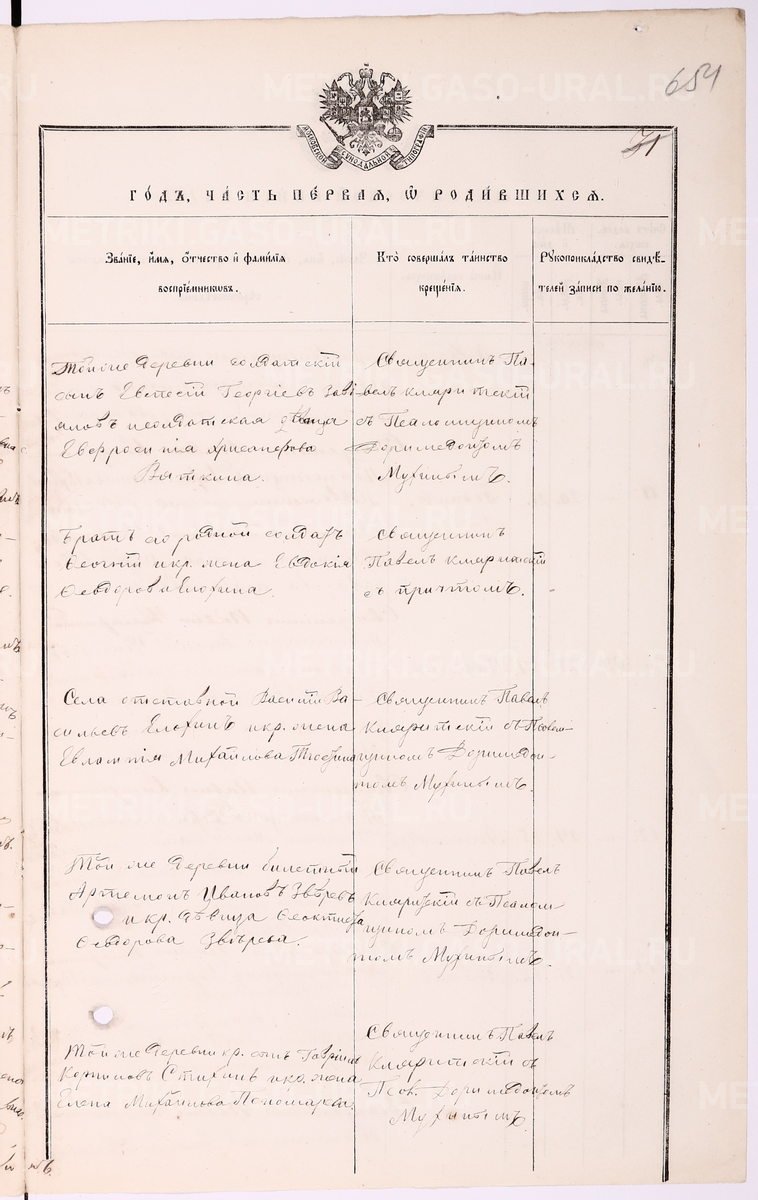 654
71
МОСКОВСКОЙ СѴНОДАЛЬНОЙ ТИПОГРАФІИ
ГОДЪ, ЧАСТЬ ПЕРВАЯ, Ѡ РОДИВШИХСЯ.
Званіе, имя, отчество и фамилія
воспріемниковъ.
Кто совершалъ таинство
крещенія.
Рукоприкладство свидѣ-
телей записи по желанію.
Той же деревни солдатскій
сынъ Евстесій Георгіевъ Заві-
яловъ и солдатская дѣвица
Евфросинія Хрисанфова
Вяткина.
Священникъ Па-
велъ Кляритскій
съ Псаломщикомъ
Доримедонтомъ
Мухинымъ.
Братъ его родной солдатъ
и кр. жена Евдокія
Ѳеодорова Елохина.
Священникъ
Павелъ Кляритскій
съ причтомъ.
Села отставной Василій Ва-
сильевъ Елохинъ и кр. жена
Евлампія Михайлова
Священникъ Павелъ
Кляритскій съ Псалом-
щикомъ Доримедон-
томъ Мухинымъ.
Той же деревни билетный
Артемонъ Ивановъ Звѣревъ
и кр. дѣвица Ѳеоктиста
Ѳеодорова Звѣрева.
Священникъ Павелъ
Кляритскій съ Псалом-
щикомъ Доримедон-
томъ Мухинымъ.
Той же деревни кр. сынъ Гавріилъ
Корниловъ и кр. жена
Елена Михайлова Пономарева.
Священникъ Павелъ
Кляритскій съ
Псал. Доримедонтомъ
Мухинымъ.
METRIKI.GASO-URAL.RU